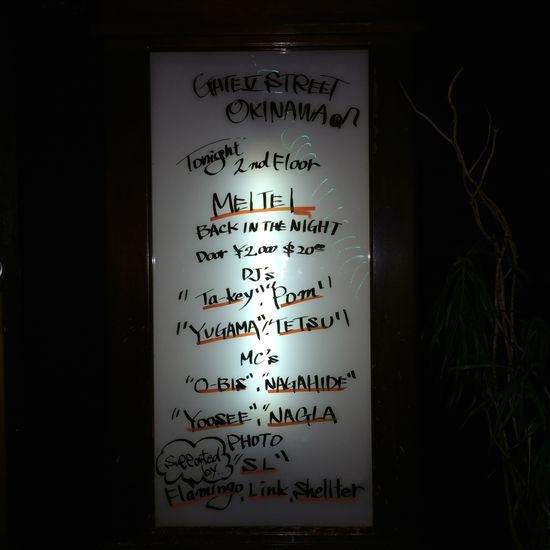 GATE V STREET
OKINAWA
Tonight
2nd Floor
MEITEI
BACK IN THE NIGHT
Door ¥2.000 $20.00
DJ's
"Ta-key", "Pom"
"YUGAMA", "TETSU"
MC's
"O-BIS", "NAGAHIDE"
"YOOSEE", "NAGLA"
PHOTO
"SL"
Supported by...
Flamingo, Link, Shellter